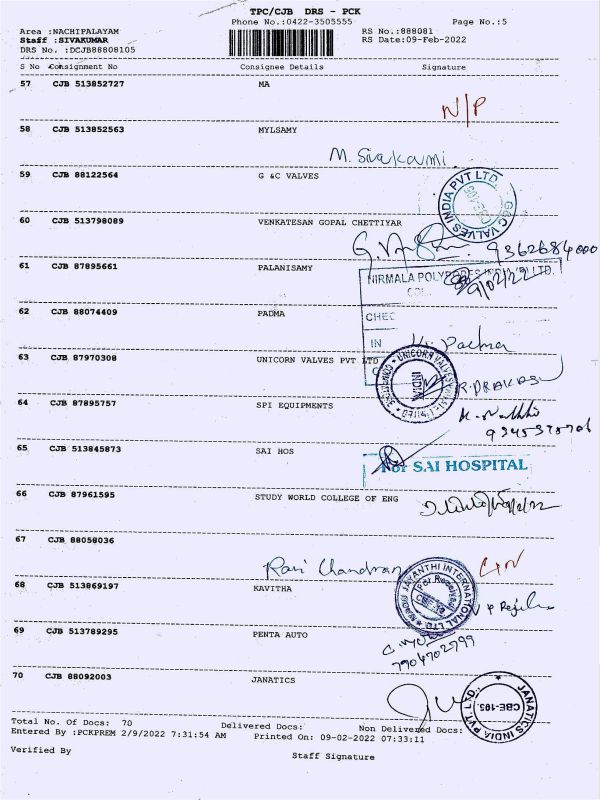 TPC/CJB DRS - PCK
Phone No.:0422-3505555 Page No.:5
Area :NACHIPALAYAM RS No.:888081
Staff :SIVAKUMAR RS Date:09-Feb-2022
DRS No. :DCJB88808105
S No Consignment No Consignee Details Signature
57 CJB 513852727 MA
N/P
58 CJB 513852563 MYLSAMY
M. Sivakami
59 CJB 88122564 G &C VALVES
G&C VALVES INDIA PVT LTD
60 CJB 513798089 VENKATESAN GOPAL CHETTIYAR
9362684000
61 CJB 87895661 PALANISAMY
NIRMALA POLYPROPES INDIA (P) LTD.
9/02/22
62 CJB 88074409 PADMA
CHEC
IN
Padma
63 CJB 87970308 UNICORN VALVES PVT LTD
UNICORN VALVES PRIVATE LIMITED
INDIA
R. PRAKASH
64 CJB 87895757 SPI EQUIPMENTS
65 CJB 513845873 SAI HOS
For SAI HOSPITAL
66 CJB 87961595 STUDY WORLD COLLEGE OF ENG
67 CJB 88058036
Ravi Chandran
68 CJB 513869197 KAVITHA
JAYANTHI INTERNATIONAL LTD
69 CJB 513789295 PENTA AUTO
7904702799
70 CJB 88092003 JANATICS
JANATICS INDIA PVT. LTD.
CBE-105.
Total No. Of Docs: 70 Delivered Docs: Non Delivered Docs:
Entered By :PCKPREM 2/9/2022 7:31:54 AM Printed On: 09-02-2022 07:33:11
Verified By Staff Signature